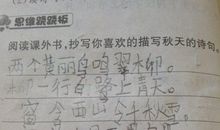 思维跷跷板
阅读课外书,抄写你喜欢的描写秋天的诗句。
两个黄鹂鸣翠柳。
柳一行百路上青天。
窗含西岭千秋雪。